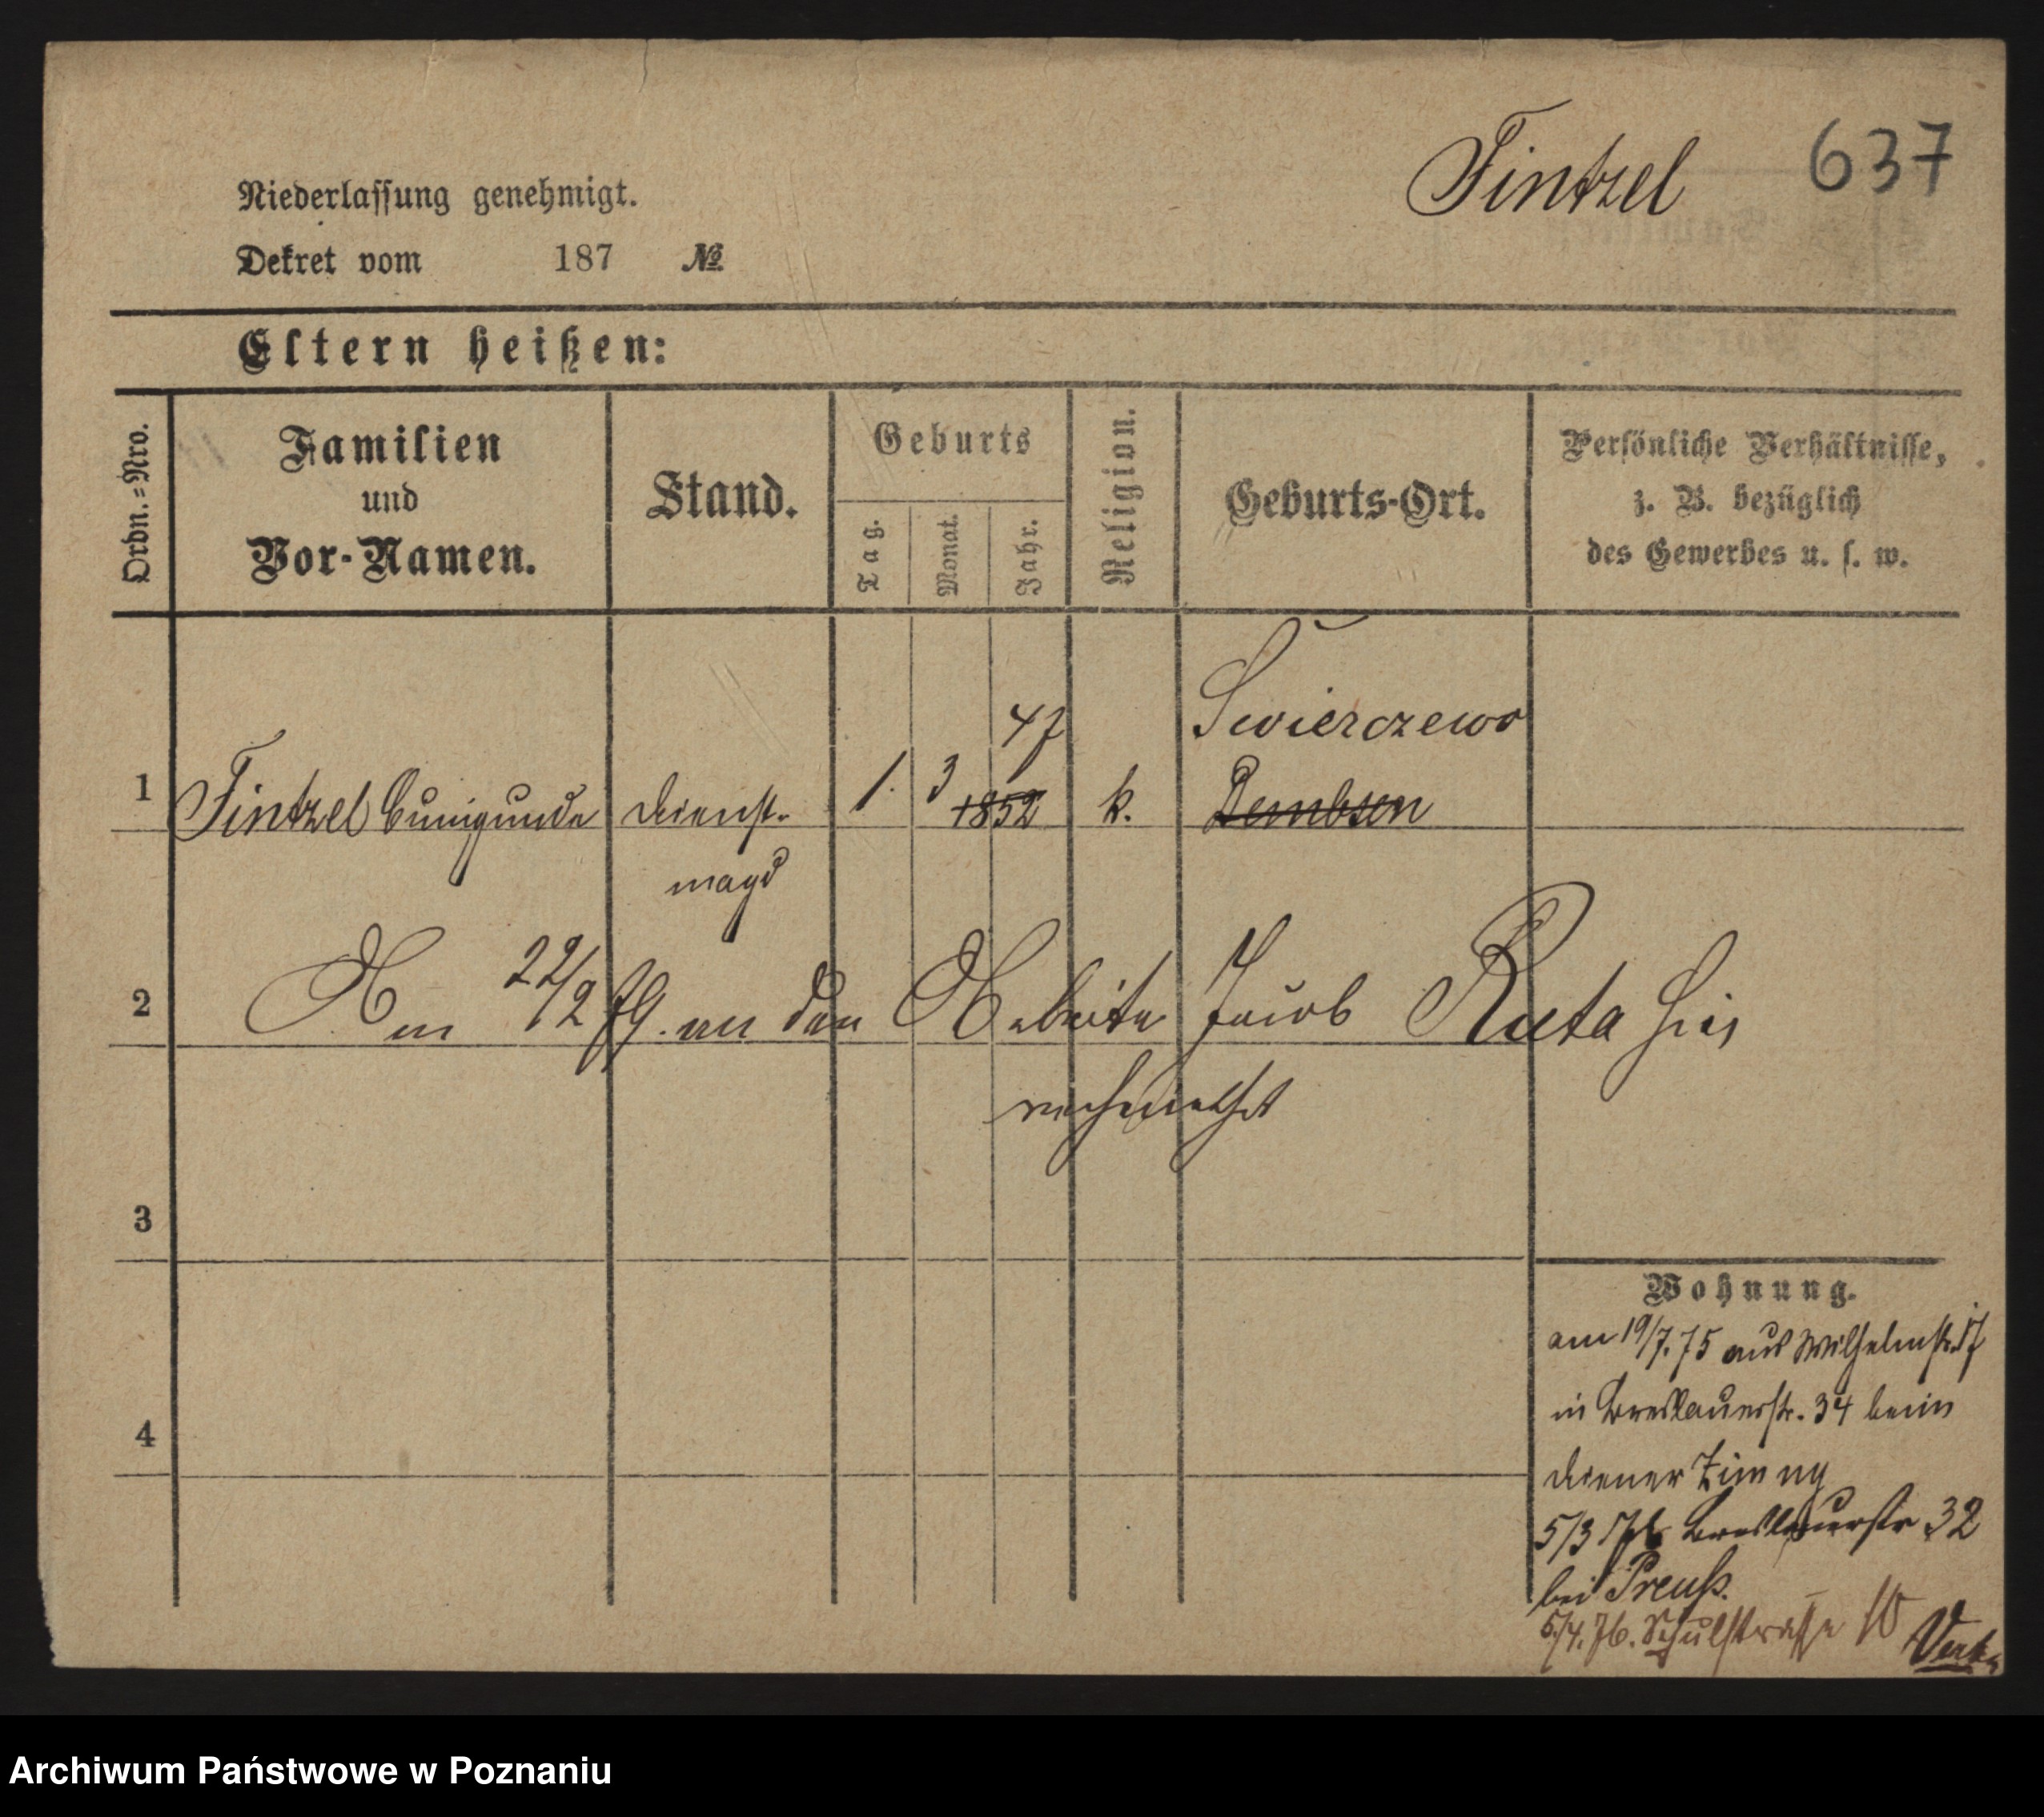 Fintzel 637
Niederlassung genehmigt.
Dekret vom 187 №
Eltern heißen:
Ordn.=Nro.
Familien
und
Vor-Namen.
Stand.
Geburts
Tag.
Monat.
Jahr.
Religion.
Geburts-Ort.
Persönliche Verhältnisse,
z. B. bezüglich
des Gewerbes u. s. w.
47 Swierczewo
1 Fintzel Cunigunde Dienst- 1. 3 1852 k. Dembsen
magd
2 Am 22/2 79. an den Arbeiter Jacob Ruta hier
verheirathet
3
4
Wohnung.
am 19/7. 75 aus Wilhelmstr. 17
in Breslauerstr. 34 beim
Diener
5/3 76 Breslauerstr 32
bei Preuß.
5/4. 76. Schulstrasse 10
Archiwum Państwowe w Poznaniu